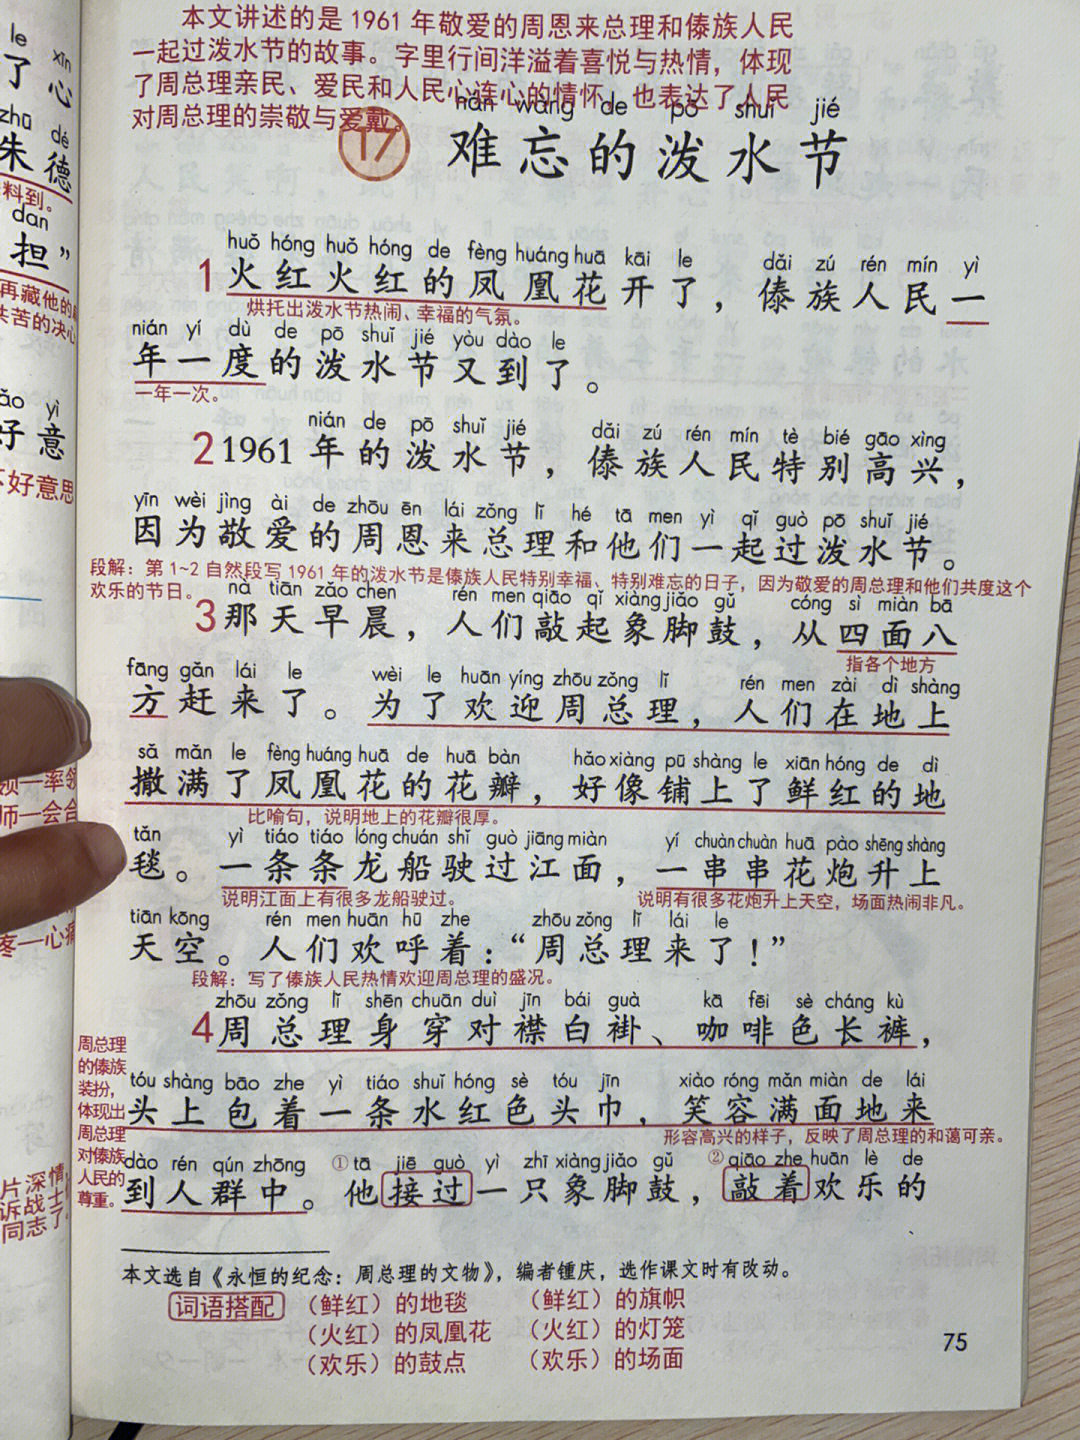 本文讲述的是 1961 年敬爱的周恩来总理和傣族人民
一起过泼水节的故事。字里行间洋溢着喜悦与热情，体现
了周总理亲民、爱民和人民心连心的情怀，也表达了人民
对周总理的崇敬与爱戴。
nán wàng de pō shuǐ jié
17 难忘的泼水节
huǒ hóng huǒ hóng de fèng huáng huā kāi le dǎi zú rén mín yì
1 火红火红的凤凰花开了，傣族人民一
烘托出泼水节热闹、幸福的气氛。
nián yí dù de pō shuǐ jié yòu dào le
年一度的泼水节又到了。
一年一次。
nián de pō shuǐ jié dǎi zú rén mín tè bié gāo xìng
2 1961 年的泼水节，傣族人民特别高兴，
yīn wèi jìng ài de zhōu ēn lái zǒng lǐ hé tā men yì qǐ guò pō shuǐ jié
因为敬爱的周恩来总理和他们一起过泼水节。
段解：第 1~2 自然段写 1961 年的泼水节是傣族人民特别幸福、特别难忘的日子，因为敬爱的周总理和他们共度这个
欢乐的节日。
nà tiān zǎo chen rén men qiāo qǐ xiàng jiǎo gǔ cóng sì miàn bā
3 那天早晨，人们敲起象脚鼓，从四面八
指各个地方
fāng gǎn lái le wèi le huān yíng zhōu zǒng lǐ rén men zài dì shàng
方赶来了。为了欢迎周总理，人们在地上
sǎ mǎn le fèng huáng huā de huā bàn hǎo xiàng pū shàng le xiān hóng de dì
撒满了凤凰花的花瓣，好像铺上了鲜红的地
比喻句，说明地上的花瓣很厚。
tǎn yì tiáo tiáo lóng chuán shǐ guò jiāng miàn yí chuàn chuàn huā pào shēng shàng
毯。一条条龙船驶过江面，一串串花炮升上
说明江面上有很多龙船驶过。 说明有很多花炮升上天空，场面热闹非凡。
tiān kōng rén men huān hū zhe zhōu zǒng lǐ lái le
天空。人们欢呼着：“周总理来了！”
段解：写了傣族人民热情欢迎周总理的盛况。
zhōu zǒng lǐ shēn chuān duì jīn bái guà kā fēi sè cháng kù
4 周总理身穿对襟白褂、咖啡色长裤，
tóu shàng bāo zhe yì tiáo shuǐ hóng sè tóu jīn xiào róng mǎn miàn de lái
头上包着一条水红色头巾，笑容满面地来
形容高兴的样子，反映了周总理的和蔼可亲。
dào rén qún zhōng ①tā jiē guò yì zhī xiàng jiǎo gǔ ②qiāo zhe huān lè de
到人群中。他接过一只象脚鼓，敲着欢乐的
周总理
的傣族
装扮，
体现出
周总理
对傣族
人民的
尊重。
本文选自《永恒的纪念：周总理的文物》，编者锺庆，选作课文时有改动。
词语搭配 （鲜红）的地毯 （鲜红）的旗帜
（火红）的凤凰花 （火红）的灯笼
（欢乐）的鼓点 （欢乐）的场面
75
le xīn
了心
zhū dé
朱德
料到。
dan
担”
再藏他的
共苦的决心
ǎo yì
好意
不好意思
率领
师一会合
疼一心痛
片深情
诉战士
同志了